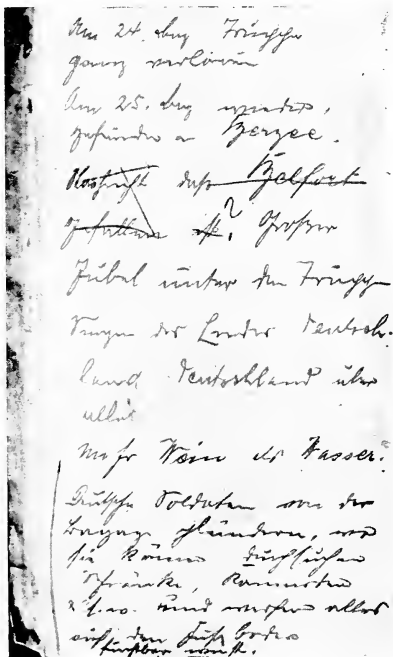 Am 24. Aug Truppe
ganz verloren
Am 25. Aug wieder
gefunden a Berzee.
Nachricht daß Belfort
gefallen ist? Großer
Jubel unter den Truppen
Singen des Liedes Deutsch-
land Deutschland über
alles
mehr Wein als Wasser.
Deutsche Soldaten von der
Bagage plündern, wo
sie können durchsuchen
Schränke, Kommoden
u.s.w. und werfen alles
auf den Fußboden
furchtbar wüst.